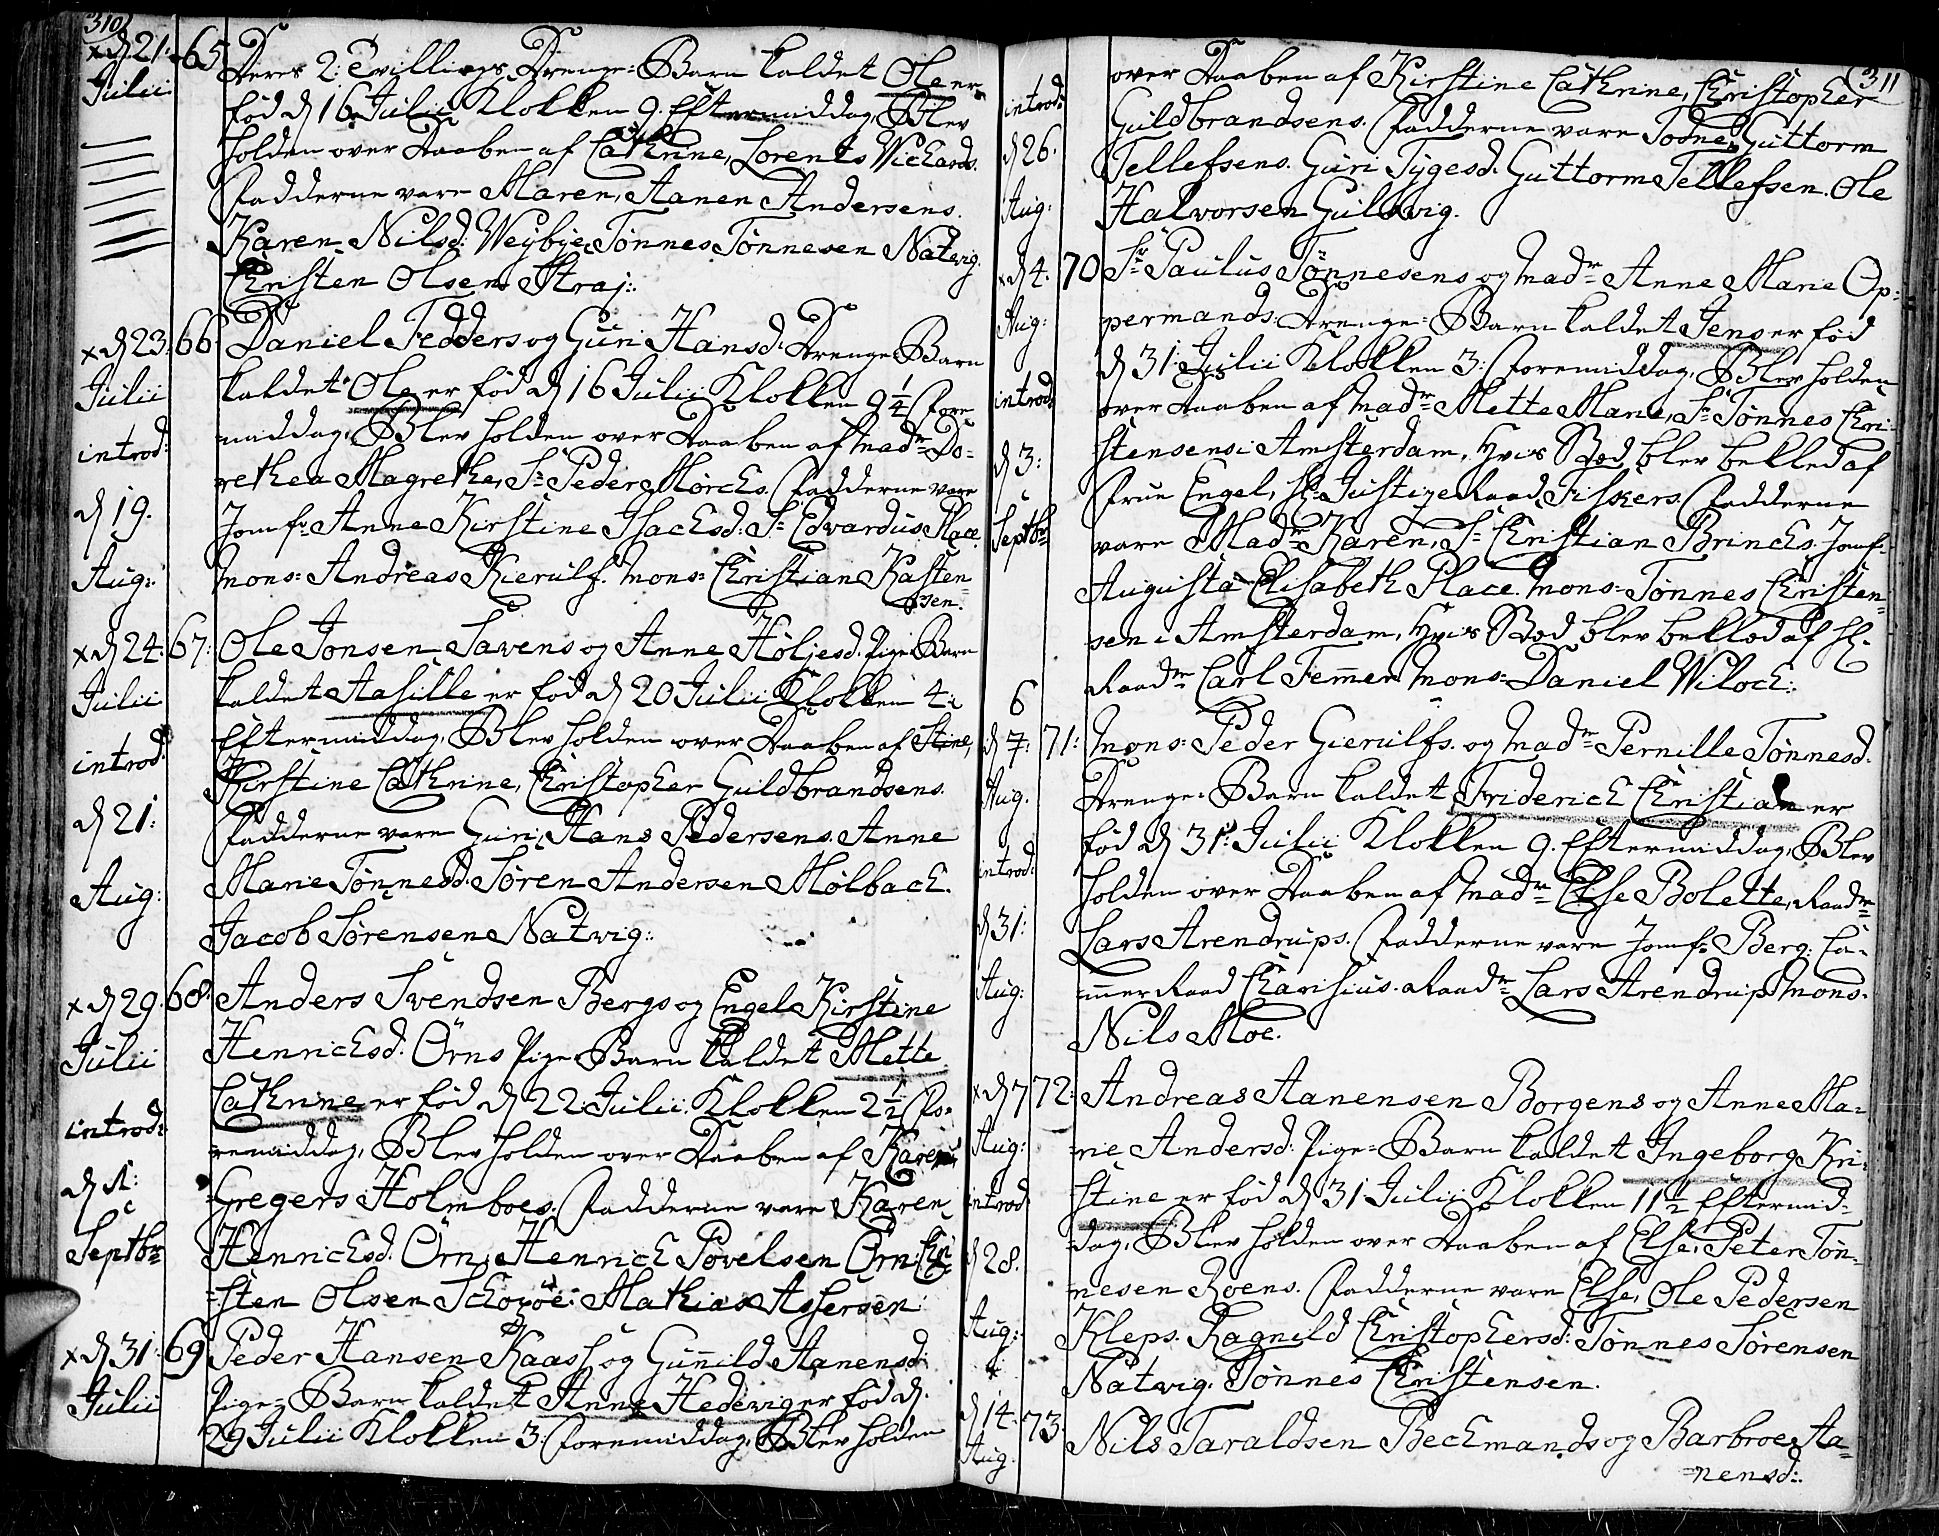 310
x d 21: 65 Deres 2: Tvillings Drenge-Barn kaldet Ole er
Julii
fød d 16 Julii Klokken 9. Eftermiddag, Blev
holden over Daaben af Cathrine, Lorents Wichards.
Fadderne vare Maren, Aanen Andersens.
Karen Nilsd: Weybye, Tönnes Tönnesen Natvig.
Christen Olsen Straj:
x d 23. 66. Daniel Fedders og Guri Hansd: Drenge-Barn
Julii
kaldet Ole er fød d 16 Julii Klokken 9 1/4 Fore
introd:
middag, Blev holden over Daaben af Madme Do-
rethea Magrethe, Sr Peder Mørchs. Fadderne vare
d 19.
Jomfr Anne Kirstine Isachsd: Sr Edvardus Place.
Aug:
Mons: Andreas Kierulf. Mons: Christian Kasten-
-sen.
x d 24. 67: Ole Jonsen Savens og Anne Höljesd: Pige-Barn
Julii
kaldet Aasille er fød d 20 Julii Klokken 4:
introd:
Eftermiddag, Blev holden over Daaben af Stine,
Kirstine Cathrine, Christopher Guldbrandsens.
d 21:
Fadderne vare Guri, Hans Pedersens. Anne
Aug:
Marie Tönnesd: Søren Andersen Mølbach.
Jacob Sørensen Natvig:
x d 29. 68. Anders Svendsen Bergs og Engel Kirstine
Julii
Henrichsd: Örns Pige-Barn kaldet Mette
introd:
Cathrine er fød d 22 Julii Klokken 2 1/2 Fo-
remiddag, Blev holden over Daaben af Karen
d 1:
Gregers Holmboes. Fadderne vare Karen
Septbr
Henrichsd: Örn, Henrich Povelsen Örn. Chri-
-sten Olsen Mathias Assersen:
x d 31: 69 Peder Hansen Kaas og Gunnild Aanensd:
Julii
Pige-Barn kaldet Anne Hedevig er fød d.
29 Julii Klokken 3. Foremiddag, Blev holden
311
introd:
over Daaben af Kirstine Cathrine, Christopher
Guldbrandsens. Fadderne vare Todne, Guttorm
d 26.
Tellefsens. Guri Tygesd: Guttorm Tellefsen. Ole
Aug:
Halvorsen Guldvig.
x d 4. 70 Sr Paulus Tönnesens og Madme Anne Marie Op-
Aug:
permands: Drenge-Barn kaldet Jens er fød
d 31 Julii Klokken 3: Foremiddag, Blev holden
introd:
over Daaben af Madme Mette Marie, Sr Tönnes Chri-
stensens i Amsterdam, Hvis Bod blev beklæd af
d 3:
Frue Engel, Hr Justize Raad Fiskers. Fadderne
Septbr
vare Madme Karen, Sr Christian Brinchs. Jomfr
Augusta Elisabeth Place. Mons: Tönnes Christen-
sen i Amsterdam, Hvis Bod blev beklæd af Hr
Raadm Carl Temmer Mons: Daniel Wiloch:
6
d 7: 71: Mons: Peder Gierulfs. og Madme Pernille Tönnesd.
Aug.
Drenge-Barn kaldet Friderich Christian er
fød d 31: Julii Klokken 9. Eftermiddag, Blev
introd:
holden over Daaben af Madme Else Bolette, Raadm
d 31:
Lars Arendrups. Fadderne vare Jomfr Berg. Ca-
Aug:
mmer Raad Charisius. Raadm Lars Arendrup Mons.
Nils Moe.
x d 7 72: Andreas Aanensen Borgens og Anne Ma-
Aug:
rie Andersd: Pige-Barn kaldet Ingeborg Kri-
introd
stine er fød d 31 Julii Klokken 11 1/2 Eftermid-
dag, Blev holden over Daaben af Else, Peter Tön-
d 28.
nesen Roens. Fadderne vare Else, Ole Pedersen
Aug:
Kleps. Ragnild Christophersd: Tönnes Sørensen
Natvig. Tönnes Christensen.
d 14. 73. Nils Taraldsen Beckmands og Barbroe Aa-
Aug
-nensd: